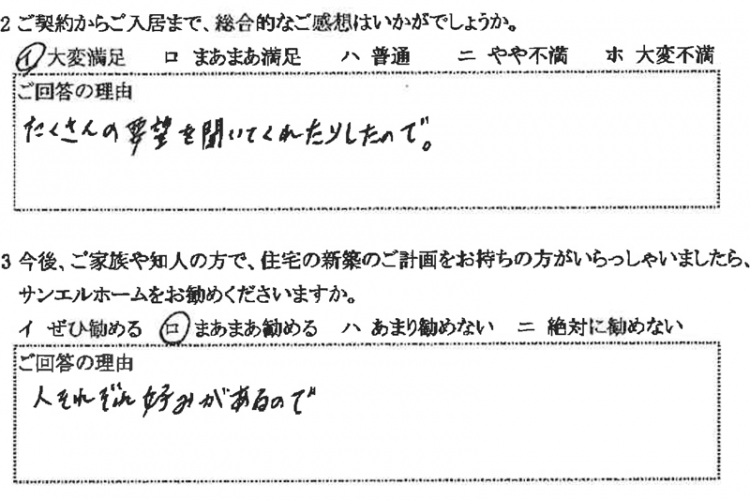 2 ご契約からご入居まで、総合的なご感想はいかがでしょうか。
イ 大変満足 ロ まあまあ満足 ハ 普通 ニ やや不満 ホ 大変不満
ご回答の理由
たくさんの要望を聞いてくれたりしたので。
3 今後、ご家族や知人の方で、住宅の新築のご計画をお持ちの方がいらっしゃいましたら、
サンエルホームをお勧めくださいますか。
イ ぜひ勧める ロ まあまあ勧める ハ あまり勧めない ニ 絶対に勧めない
ご回答の理由
人それぞれ好みがあるので